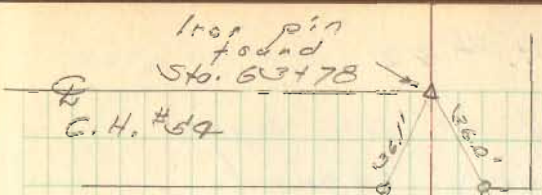 Iron pin
found
Sta. 63+78
℄
C. H. #54
36.1'
36.0'